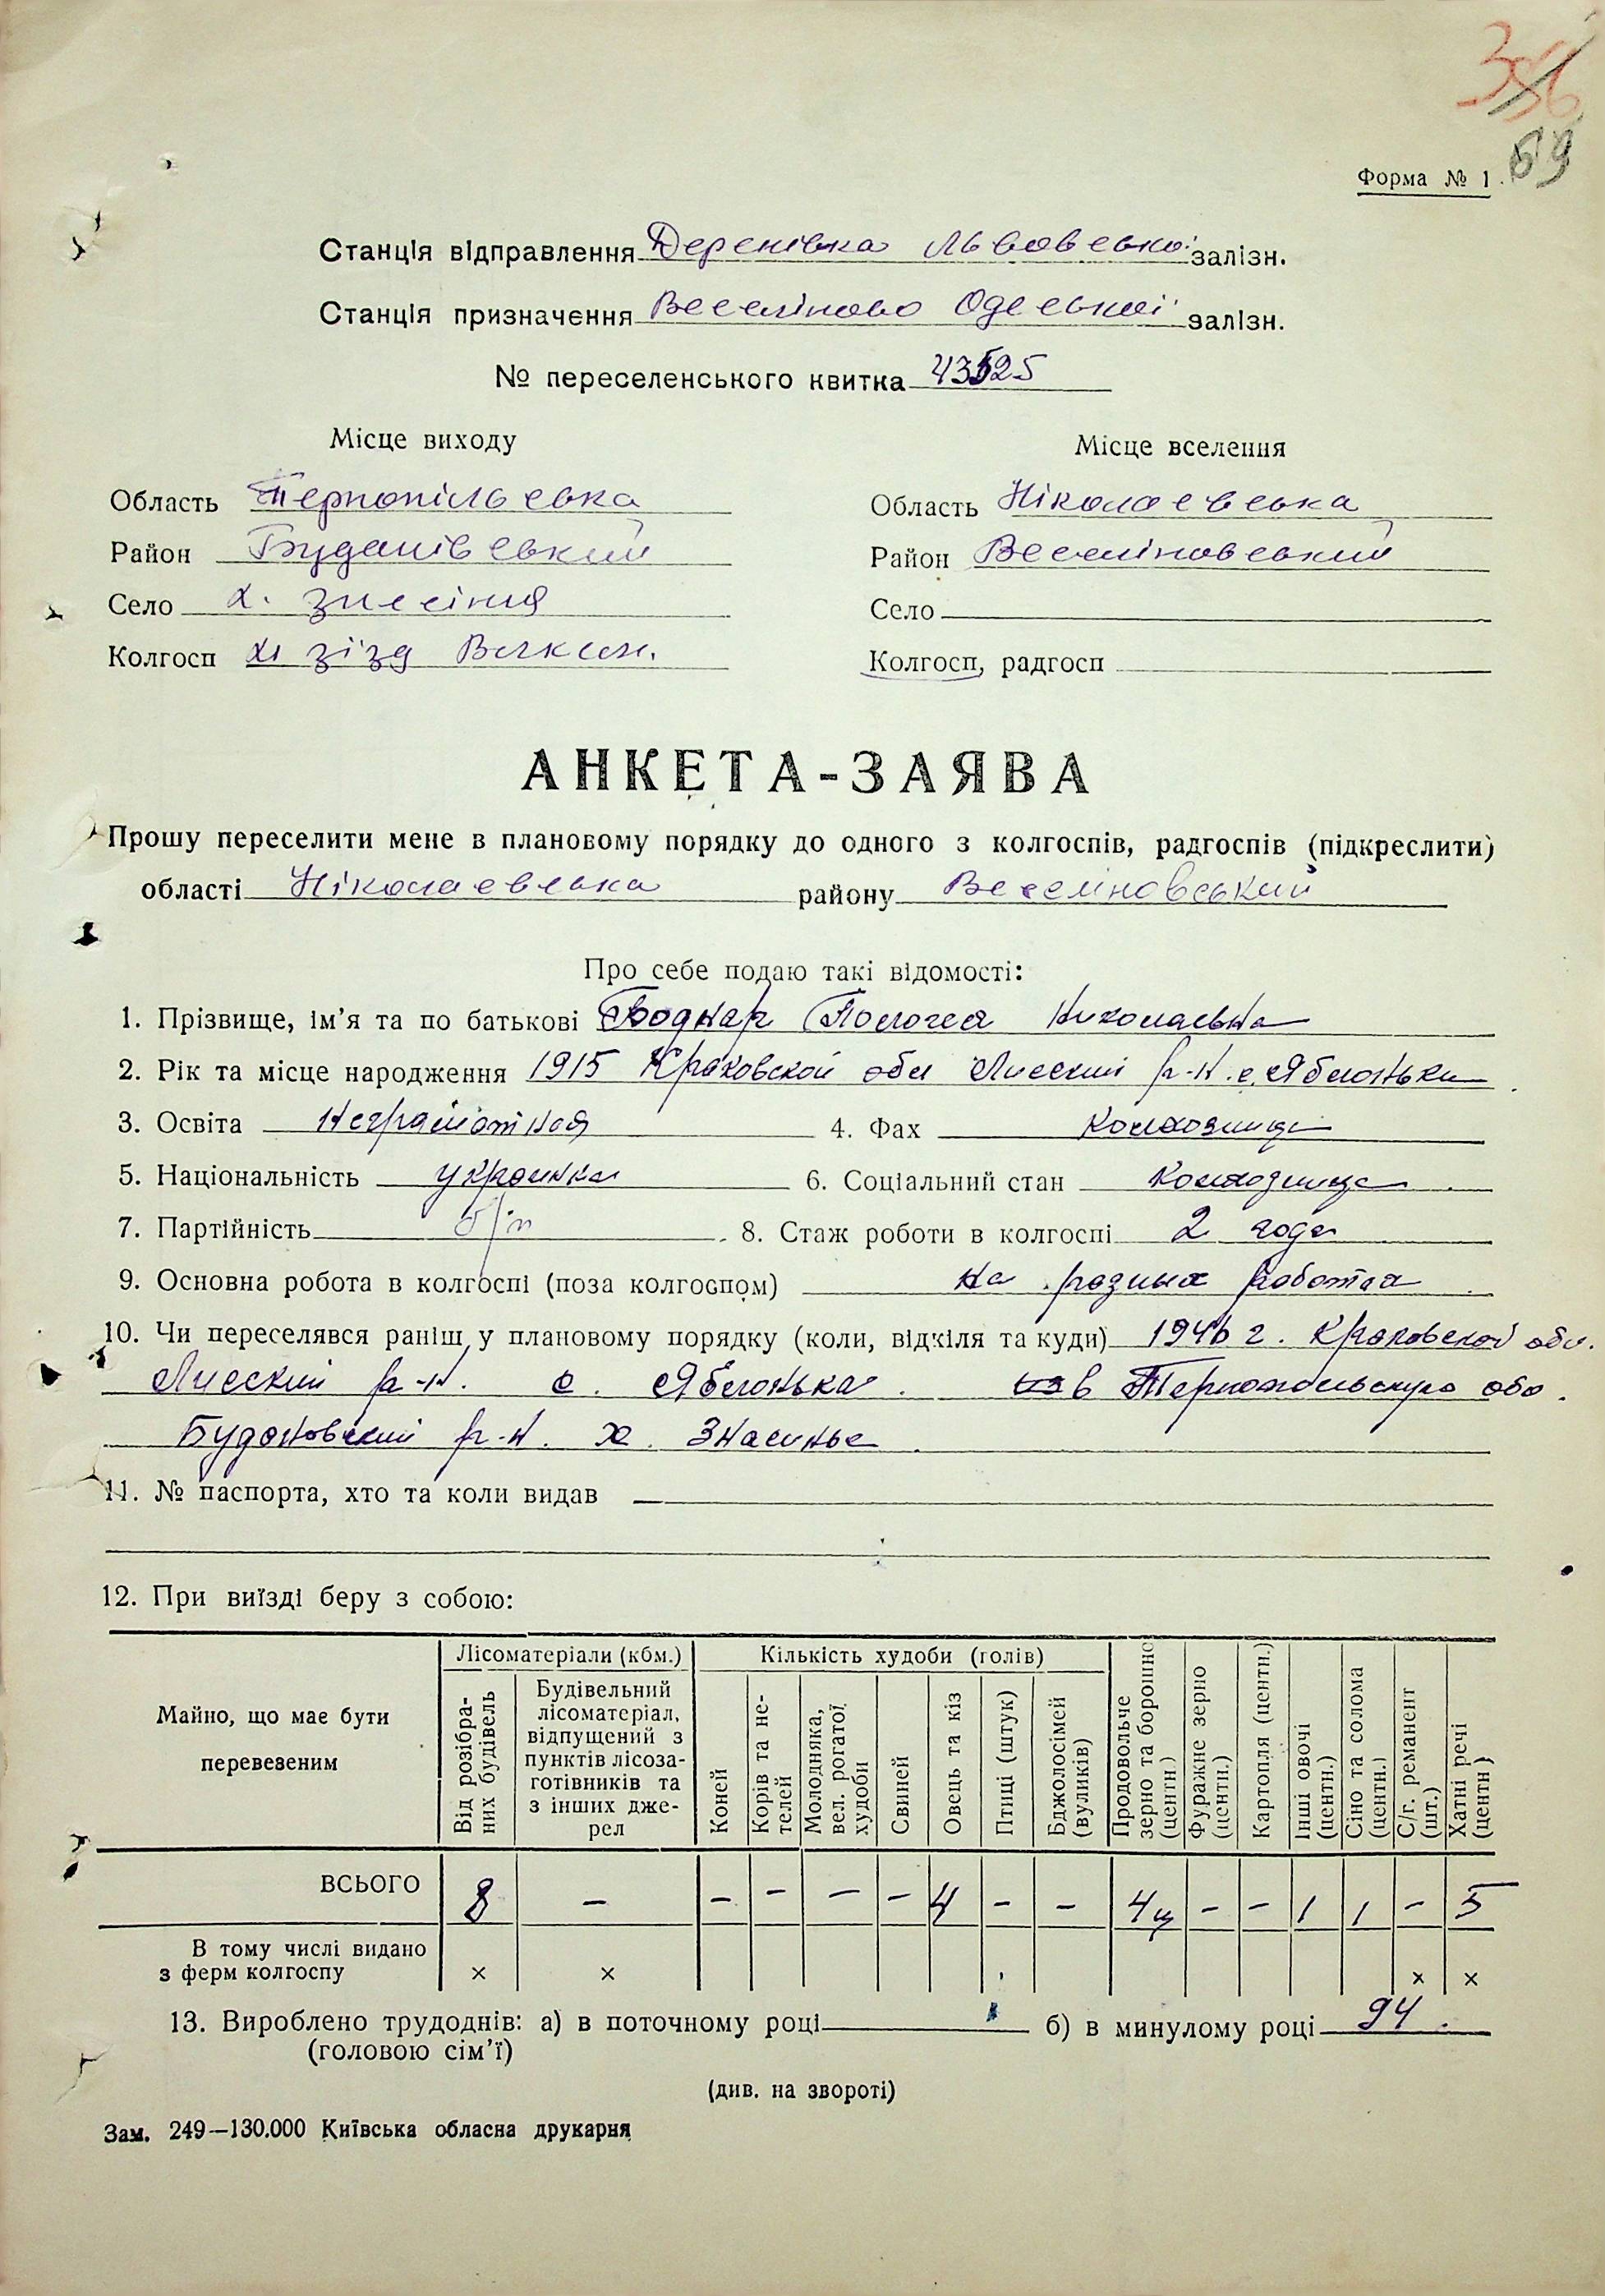 386
69
Форма № 1.
Станція відправлення Деренівка Львовської залізн.
Станція призначення Веселіново Одеської залізн.
№ переселенського квитка 43525
Місце виходу Місце вселення
Область Тернопільська Область Ніколаєвська
Район Буданівський Район Веселіновський
Село х. Знесіння Село
Колгосп XI зізд Колгосп, радгосп
АНКЕТА-ЗАЯВА
Прошу переселити мене в плановому порядку до одного з колгоспів, радгоспів (підкреслити)
області Ніколаєвська району Веселіновський
Про себе подаю такі відомості:
1. Прізвище, ім’я та по батькові Боднар Пологея Николаевна
2. Рік та місце народження 1915 Краковской обл Лисский р-н. с. Яблоньки
3. Освіта Неграмотная 4. Фах колхозница
5. Національність украинка 6. Соціальний стан колхозница
7. Партійність б/п 8. Стаж роботи в колгоспі 2 года
9. Основна робота в колгоспі (поза колгоспом) на разных работах
10. Чи переселявся раніш у плановому порядку (коли, відкіля та куди) 1946 г. Краковской обл.
Лисский р-н. с. Яблонька в Тернопольскую обл.
Будановский р-н. х. Знасинье
11. № паспорта, хто та коли видав —
12. При виїзді беру з собою:
Майно, що має бути перевезеним
Лісоматеріали (кбм.) Кількість худоби (голів)
Від розібраних будівель
Будівельний лісоматеріал, відпущений з пунктів лісозаготівників та з інших джерел
Коней
Корів та нетелей
Молодняка, вел. рогатої худоби
Свиней
Овець та кіз
Птиці (штук)
Бджолосімей (вуликів)
Продовольче зерно та борошно (центн.)
Фуражне зерно (центн.)
Картопля (центн.)
Інші овочі (центн.)
Сіно та солома (центн.)
С/г. реманент (шт.)
Хатні речі (центн)
ВСЬОГО 8 – – – – – 4 – – 4ц – – 1 1 – 5
В тому числі видано
з ферм колгоспу × × × ×
13. Вироблено трудоднів: а) в поточному році б) в минулому році 94.
(головою сім’ї)
(див. на звороті)
Зам. 249—130.000 Київська обласна друкарня